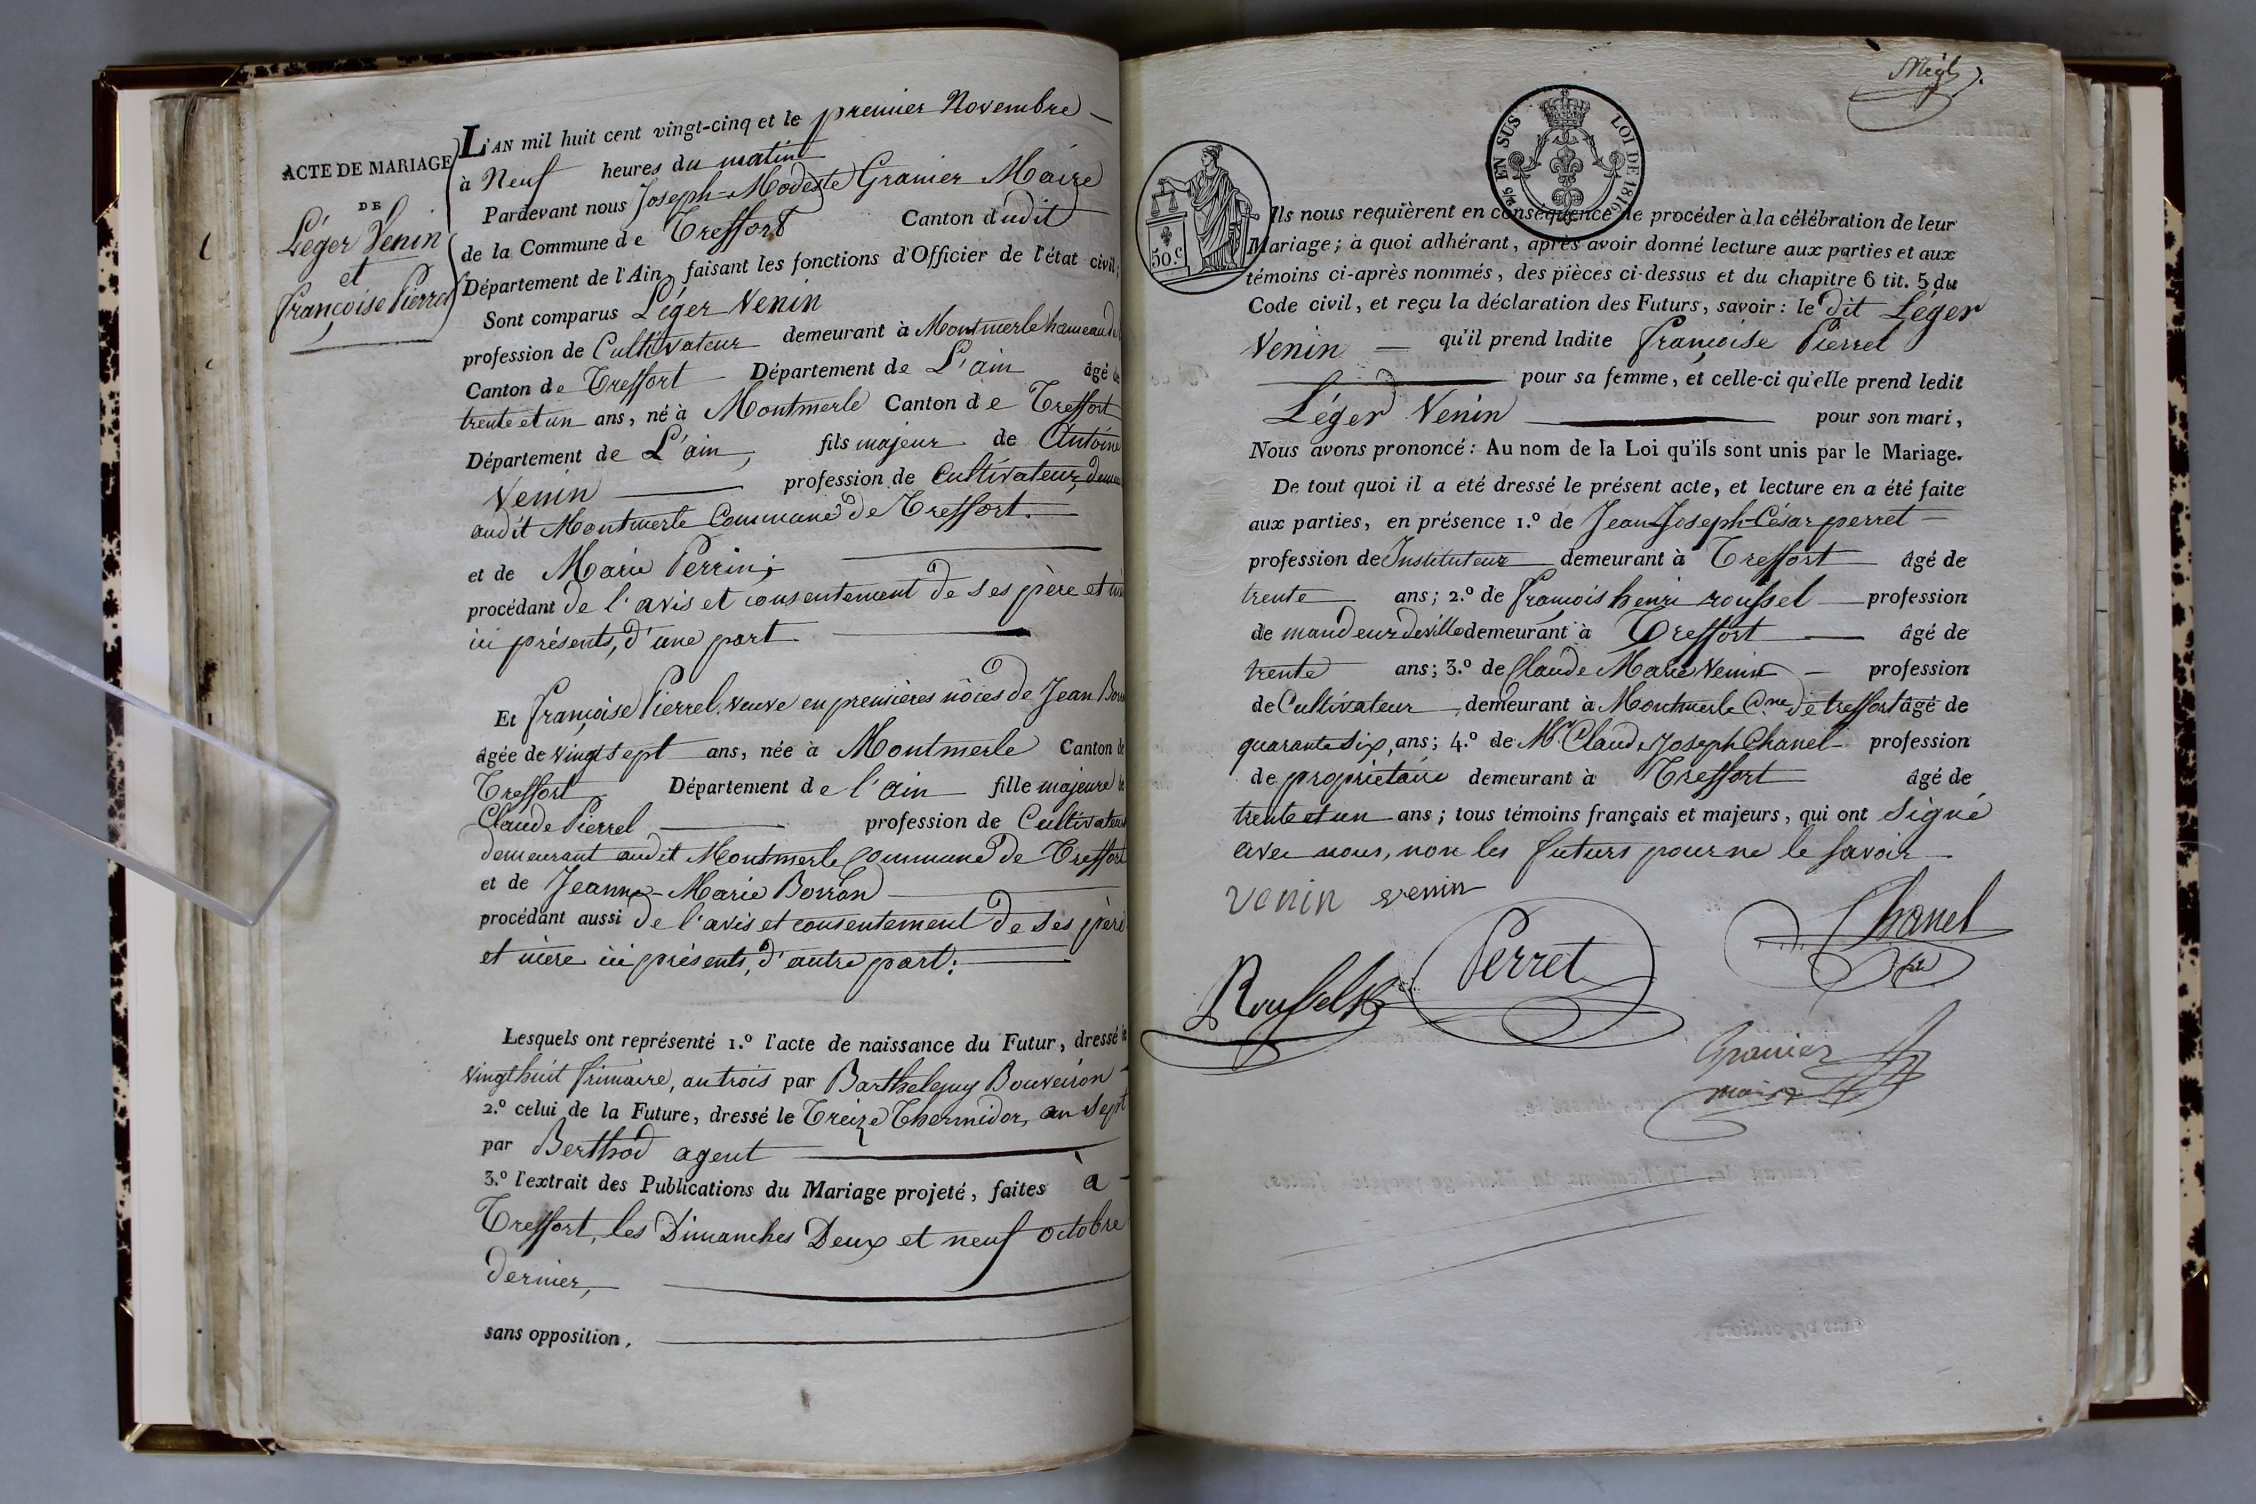 ACTE DE MARIAGE
DE
Léger Venin
et
françoise Pierrel
L'AN mil huit cent vingt-cinq et le premier Novembre
à Neuf heures du matin
Pardevant nous Joseph-Modeste Granier Maire
de la Commune de Treffort Canton dudit
Département de l'Ain, faisant les fonctions d'Officier de l'état civil;
Sont comparus Léger Venin
profession de Cultivateur demeurant à Montmerle hameau de
Canton de Treffort Département de L'ain âgé de
trente et un ans, né à Montmerle Canton de Treffort
Département de L'ain, fils majeur de Antoine
Venin profession de Cultivateur,
audit Montmerle Commune de Treffort.
et de Marie Perrin;
procédant de l'avis et consentement de ses père et
ici présents, d'une part
Et françoise Pierrel, veuve en premières nôces de Jean
âgée de vingt sept ans, née à Montmerle Canton de
Treffort Département de l'ain fille majeure de
Claude Pierrel profession de Cultivateur
demeurant audit Montmerle Commune de Treffort
et de Jeanne-Marie Borron
procédant aussi de l'avis et consentement de ses père
et mère ici présents, d'autre part;
Lesquels ont représenté 1.º l'acte de naissance du Futur, dressé le
vingt huit frimaire, an trois par Barthelemy Bouveiron
2.º celui de la Future, dressé le Treize Thermidor, an sept
par Berthod agent
3.º l'extrait des Publications du Mariage projeté, faites à
Treffort, les Dimanches Deux et neuf octobre
dernier,
sans opposition.
5/6 EN SUS LOI DE 1816
50.C
Ils nous requièrent en conséquence de procéder à la célébration de leur
Mariage; à quoi adhérant, après avoir donné lecture aux parties et aux
témoins ci-après nommés, des pièces ci-dessus et du chapitre 6 tit. 5 du
Code civil, et reçu la déclaration des Futurs, savoir: le dit Léger
Venin qu'il prend ladite françoise Pierrel
pour sa femme, et celle-ci qu'elle prend ledit
Léger Venin pour son mari,
Nous avons prononcé: Au nom de la Loi qu'ils sont unis par le Mariage.
De tout quoi il a été dressé le présent acte, et lecture en a été faite
aux parties, en présence 1.º de Jean-Joseph-César perret
profession de Instituteur demeurant à Treffort âgé de
trente ans; 2.º de françois henri roussel profession
de mandeur de ville demeurant à Treffort âgé de
trente ans; 3.º de Claude Marie Venin profession
de Cultivateur demeurant à Montmerle Cne de treffort âgé de
quarante six, ans; 4.º de Mr Claude Joseph Chanel profession
de propriétaire demeurant à Treffort âgé de
trente et un ans; tous témoins français et majeurs, qui ont signé
avec nous, non les futurs pour ne le savoir
venin venin
Chanel
Perret
Roussel
Granier
maire